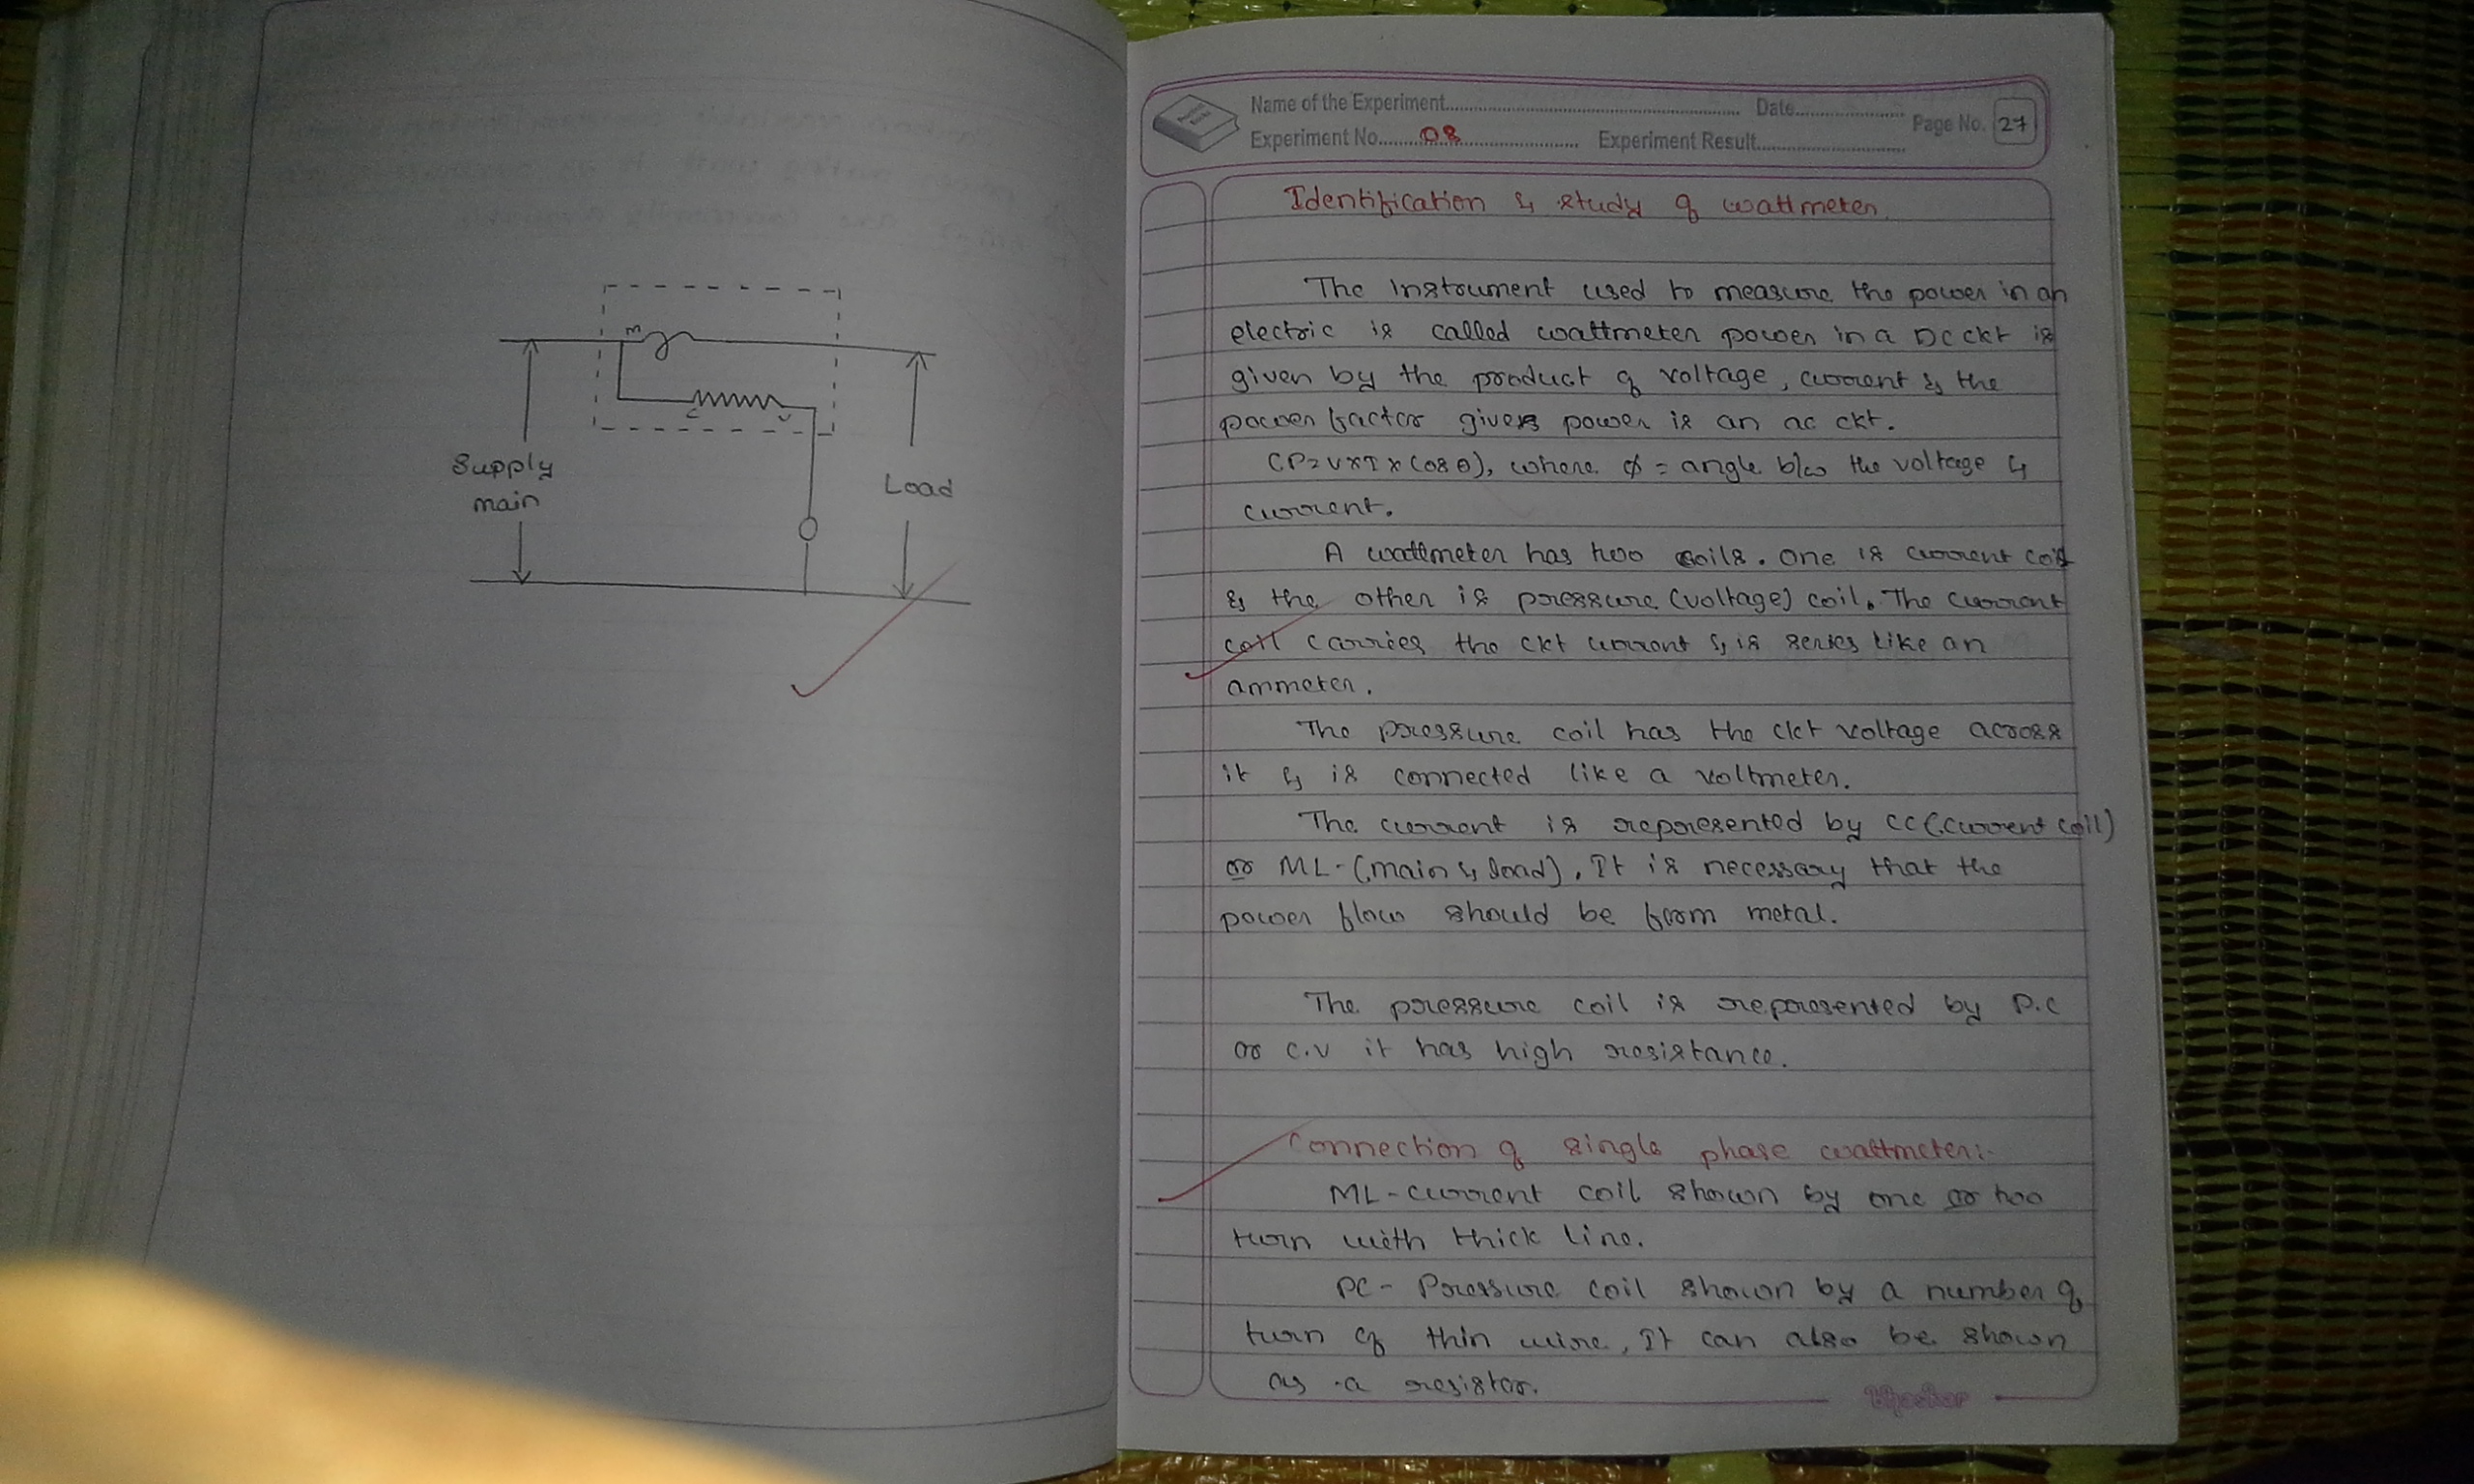 m
c
v
Supply
main
Load
Name of the Experiment.......... Date..........
Page No. 27
Experiment No.....08..... Experiment Result..........
Identification & study of wattmeter
The instrument used to measure the power in an
electric is called wattmeter power in a DC ckt is
given by the product of voltage, current & the
power factor gives power is an ac ckt.
CP=V×I×Cosθ), where ϕ = angle b/w the voltage &
current.
A wattmeter has two coils. One is current coil
& the other is pressure (voltage) coil. The current
coil carries the ckt current & is series like an
ammeter.
The pressure coil has the ckt voltage across
it & is connected like a voltmeter.
The current is represented by CC (current coil)
or ML-(main & load). It is necessary that the
power flow should be from metal.
The pressure coil is represented by P.C
or C.V it has high resistance.
Connection of single phase wattmeter:-
ML-current coil shown by one or two
turn with thick line.
PC- Pressure coil shown by a number of
turn of thin wire, It can also be shown
as a resistor.